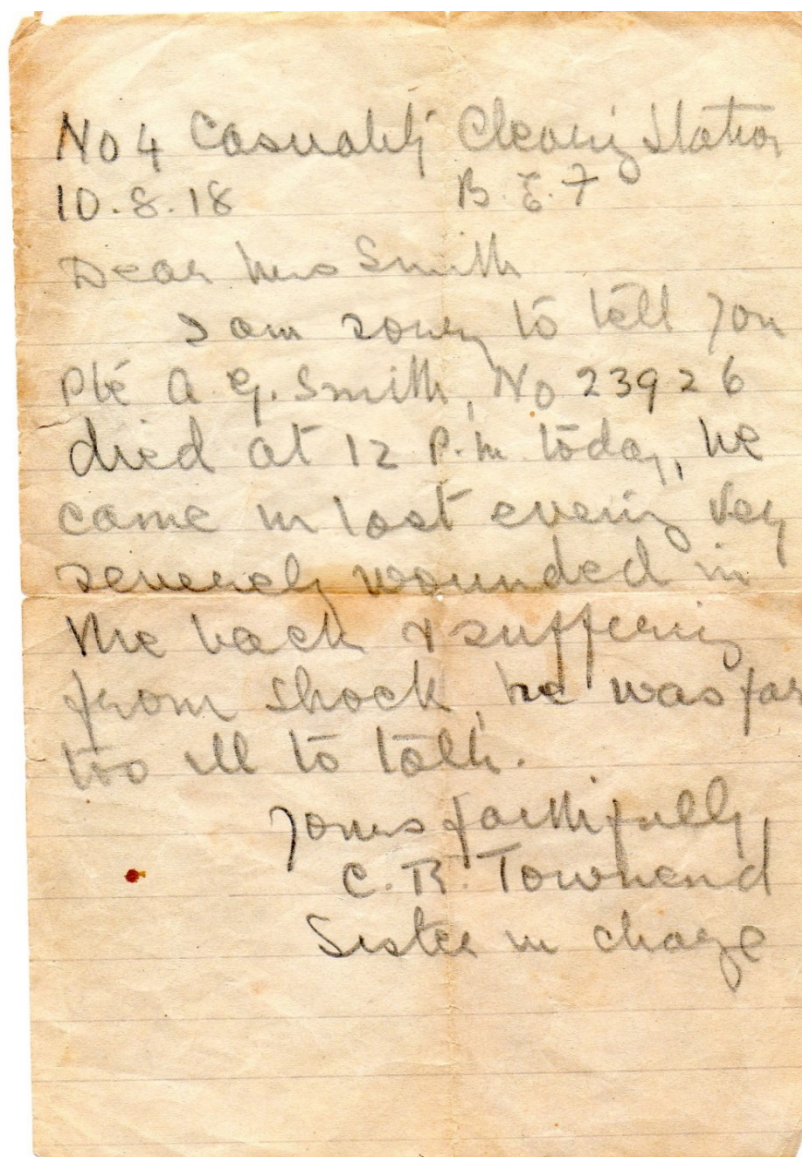 No 4 Casualty Clearing Station
10.8.18 B.E.F
Dear Mrs Smith
I am sorry to tell you
Pte A. G. Smith, No 23926
died at 12 P.m. today, he
came in last evening very
severely wounded in
the back & suffering
from shock, he was far
too ill to talk.
Yours faithfully,
C. R. Townend
Sister in charge